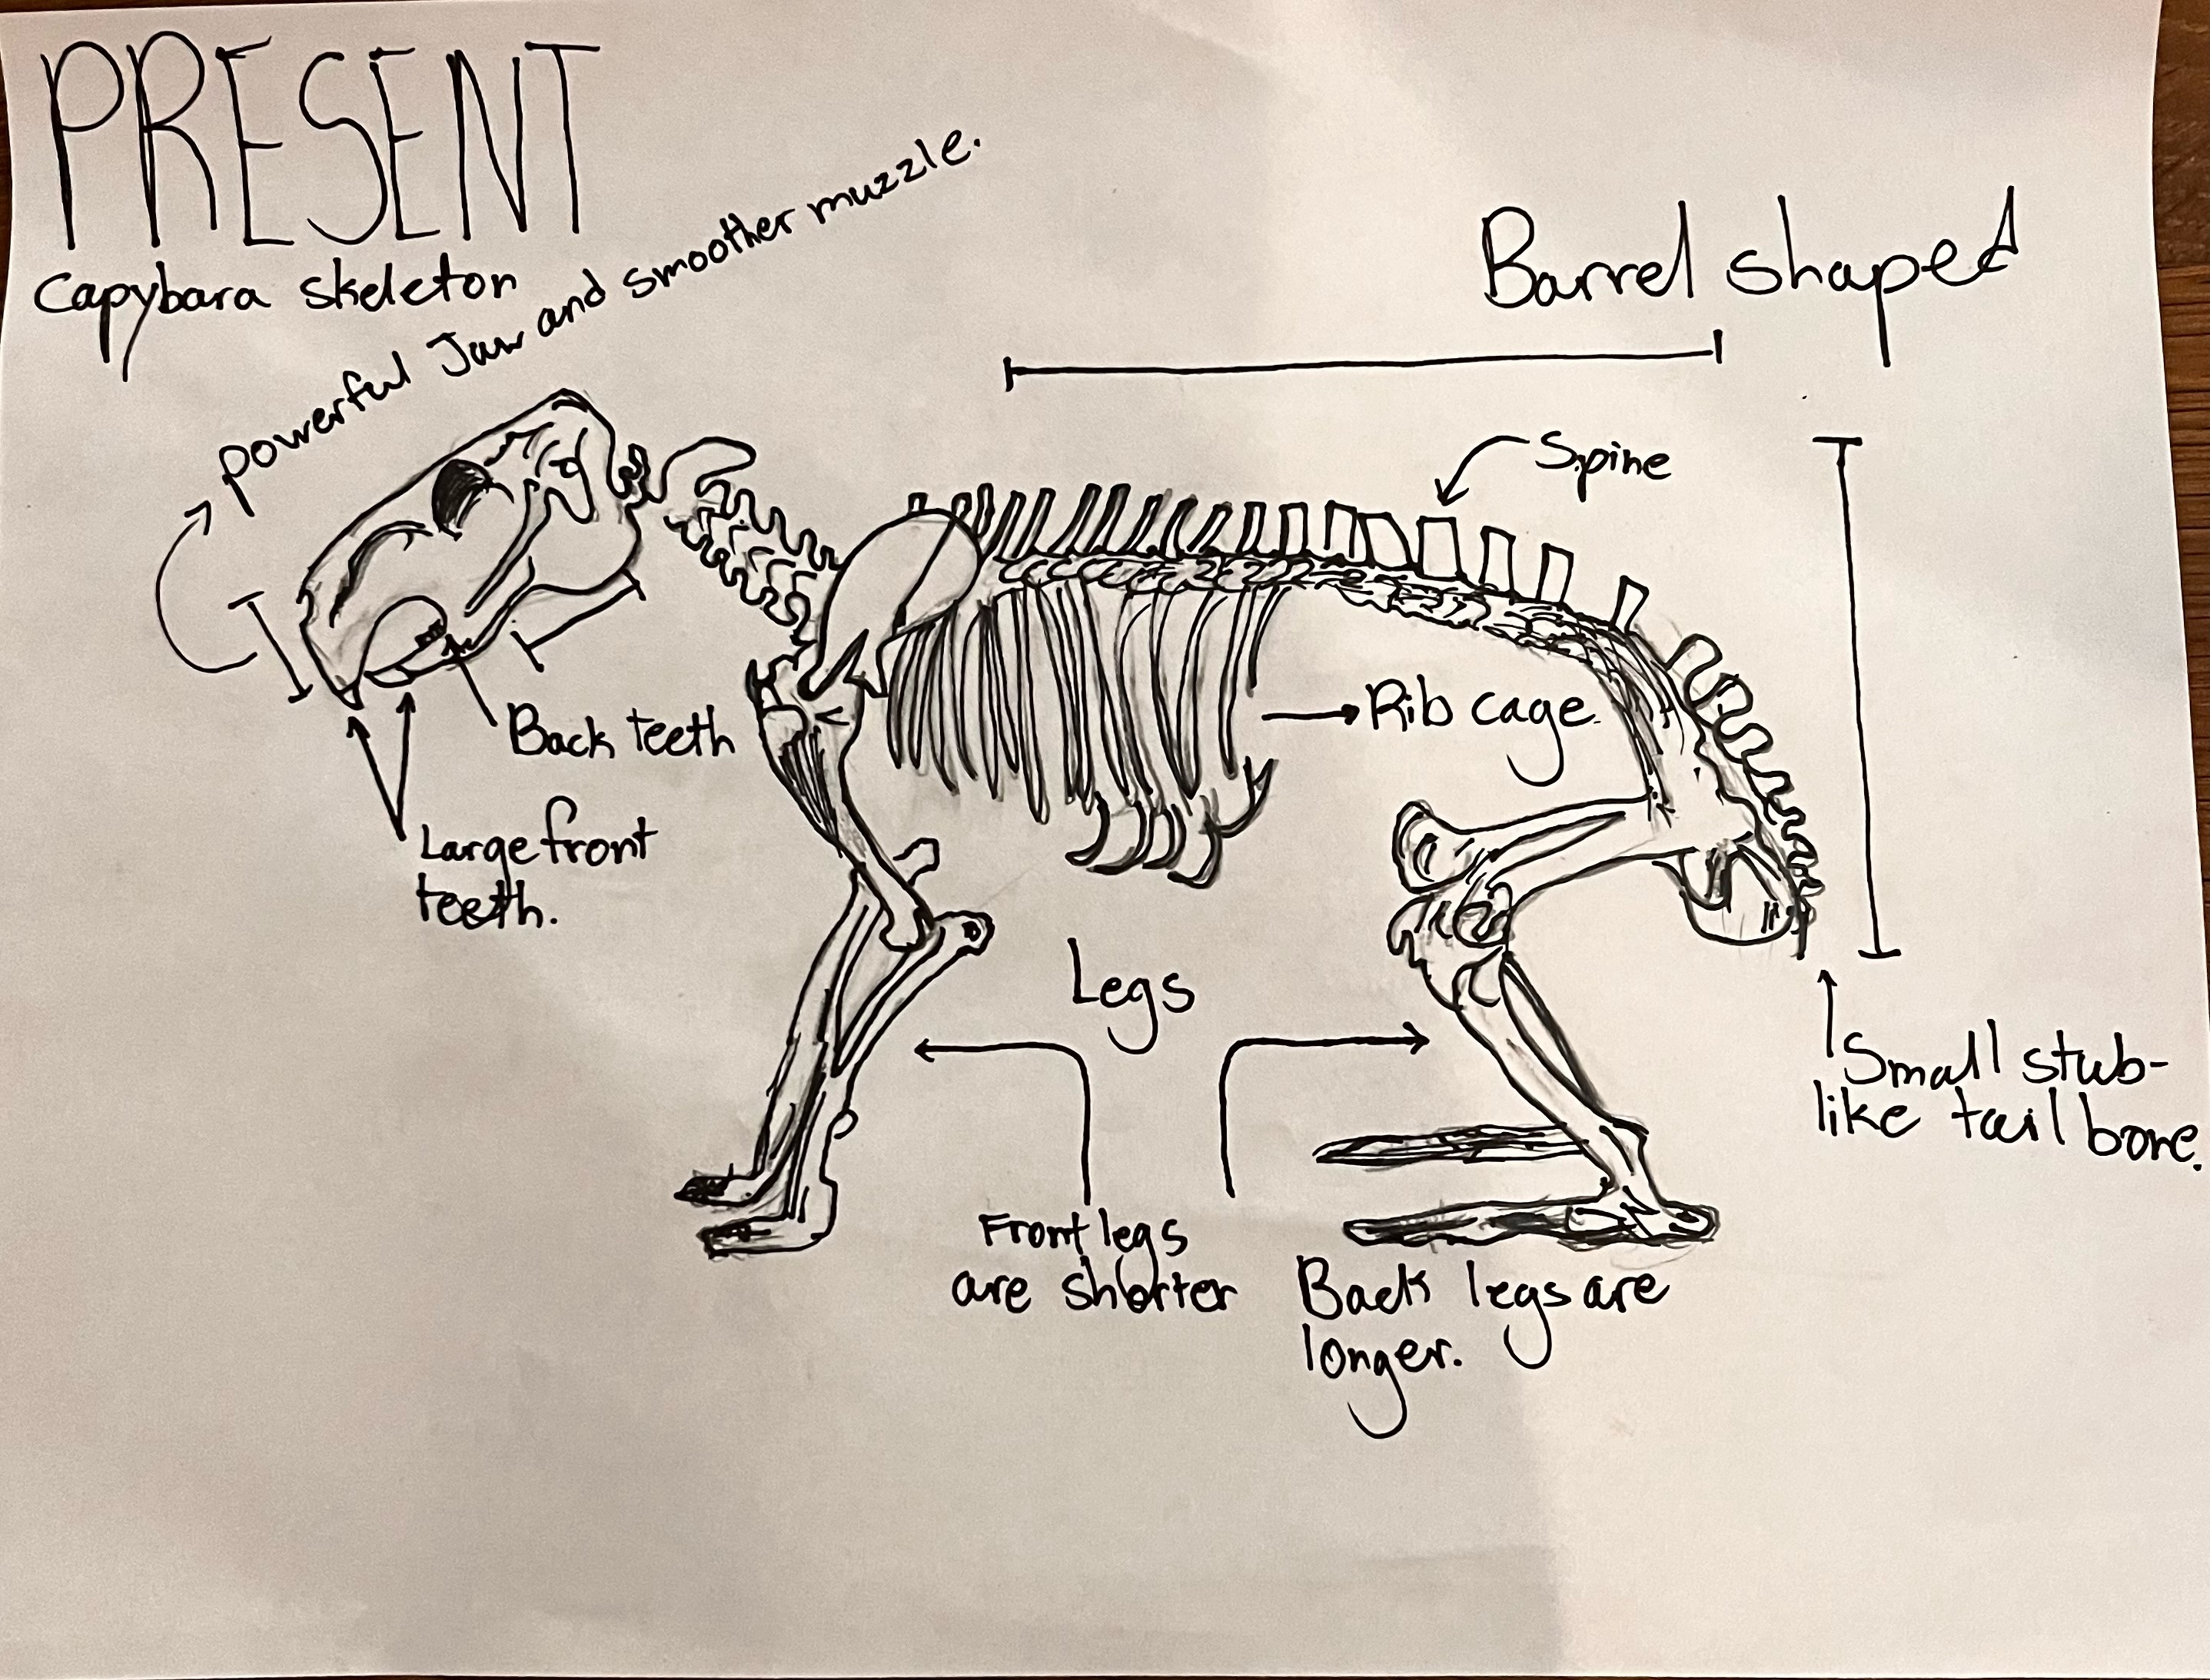 PRESENT
Capybara skeleton
powerful Jaw and smoother muzzle.
Barrel shaped
Spine
Rib cage.
Back teeth
Large front
teeth.
Legs
Small stub-
like tail bone.
Front legs
are shorter
Back legs are
longer.